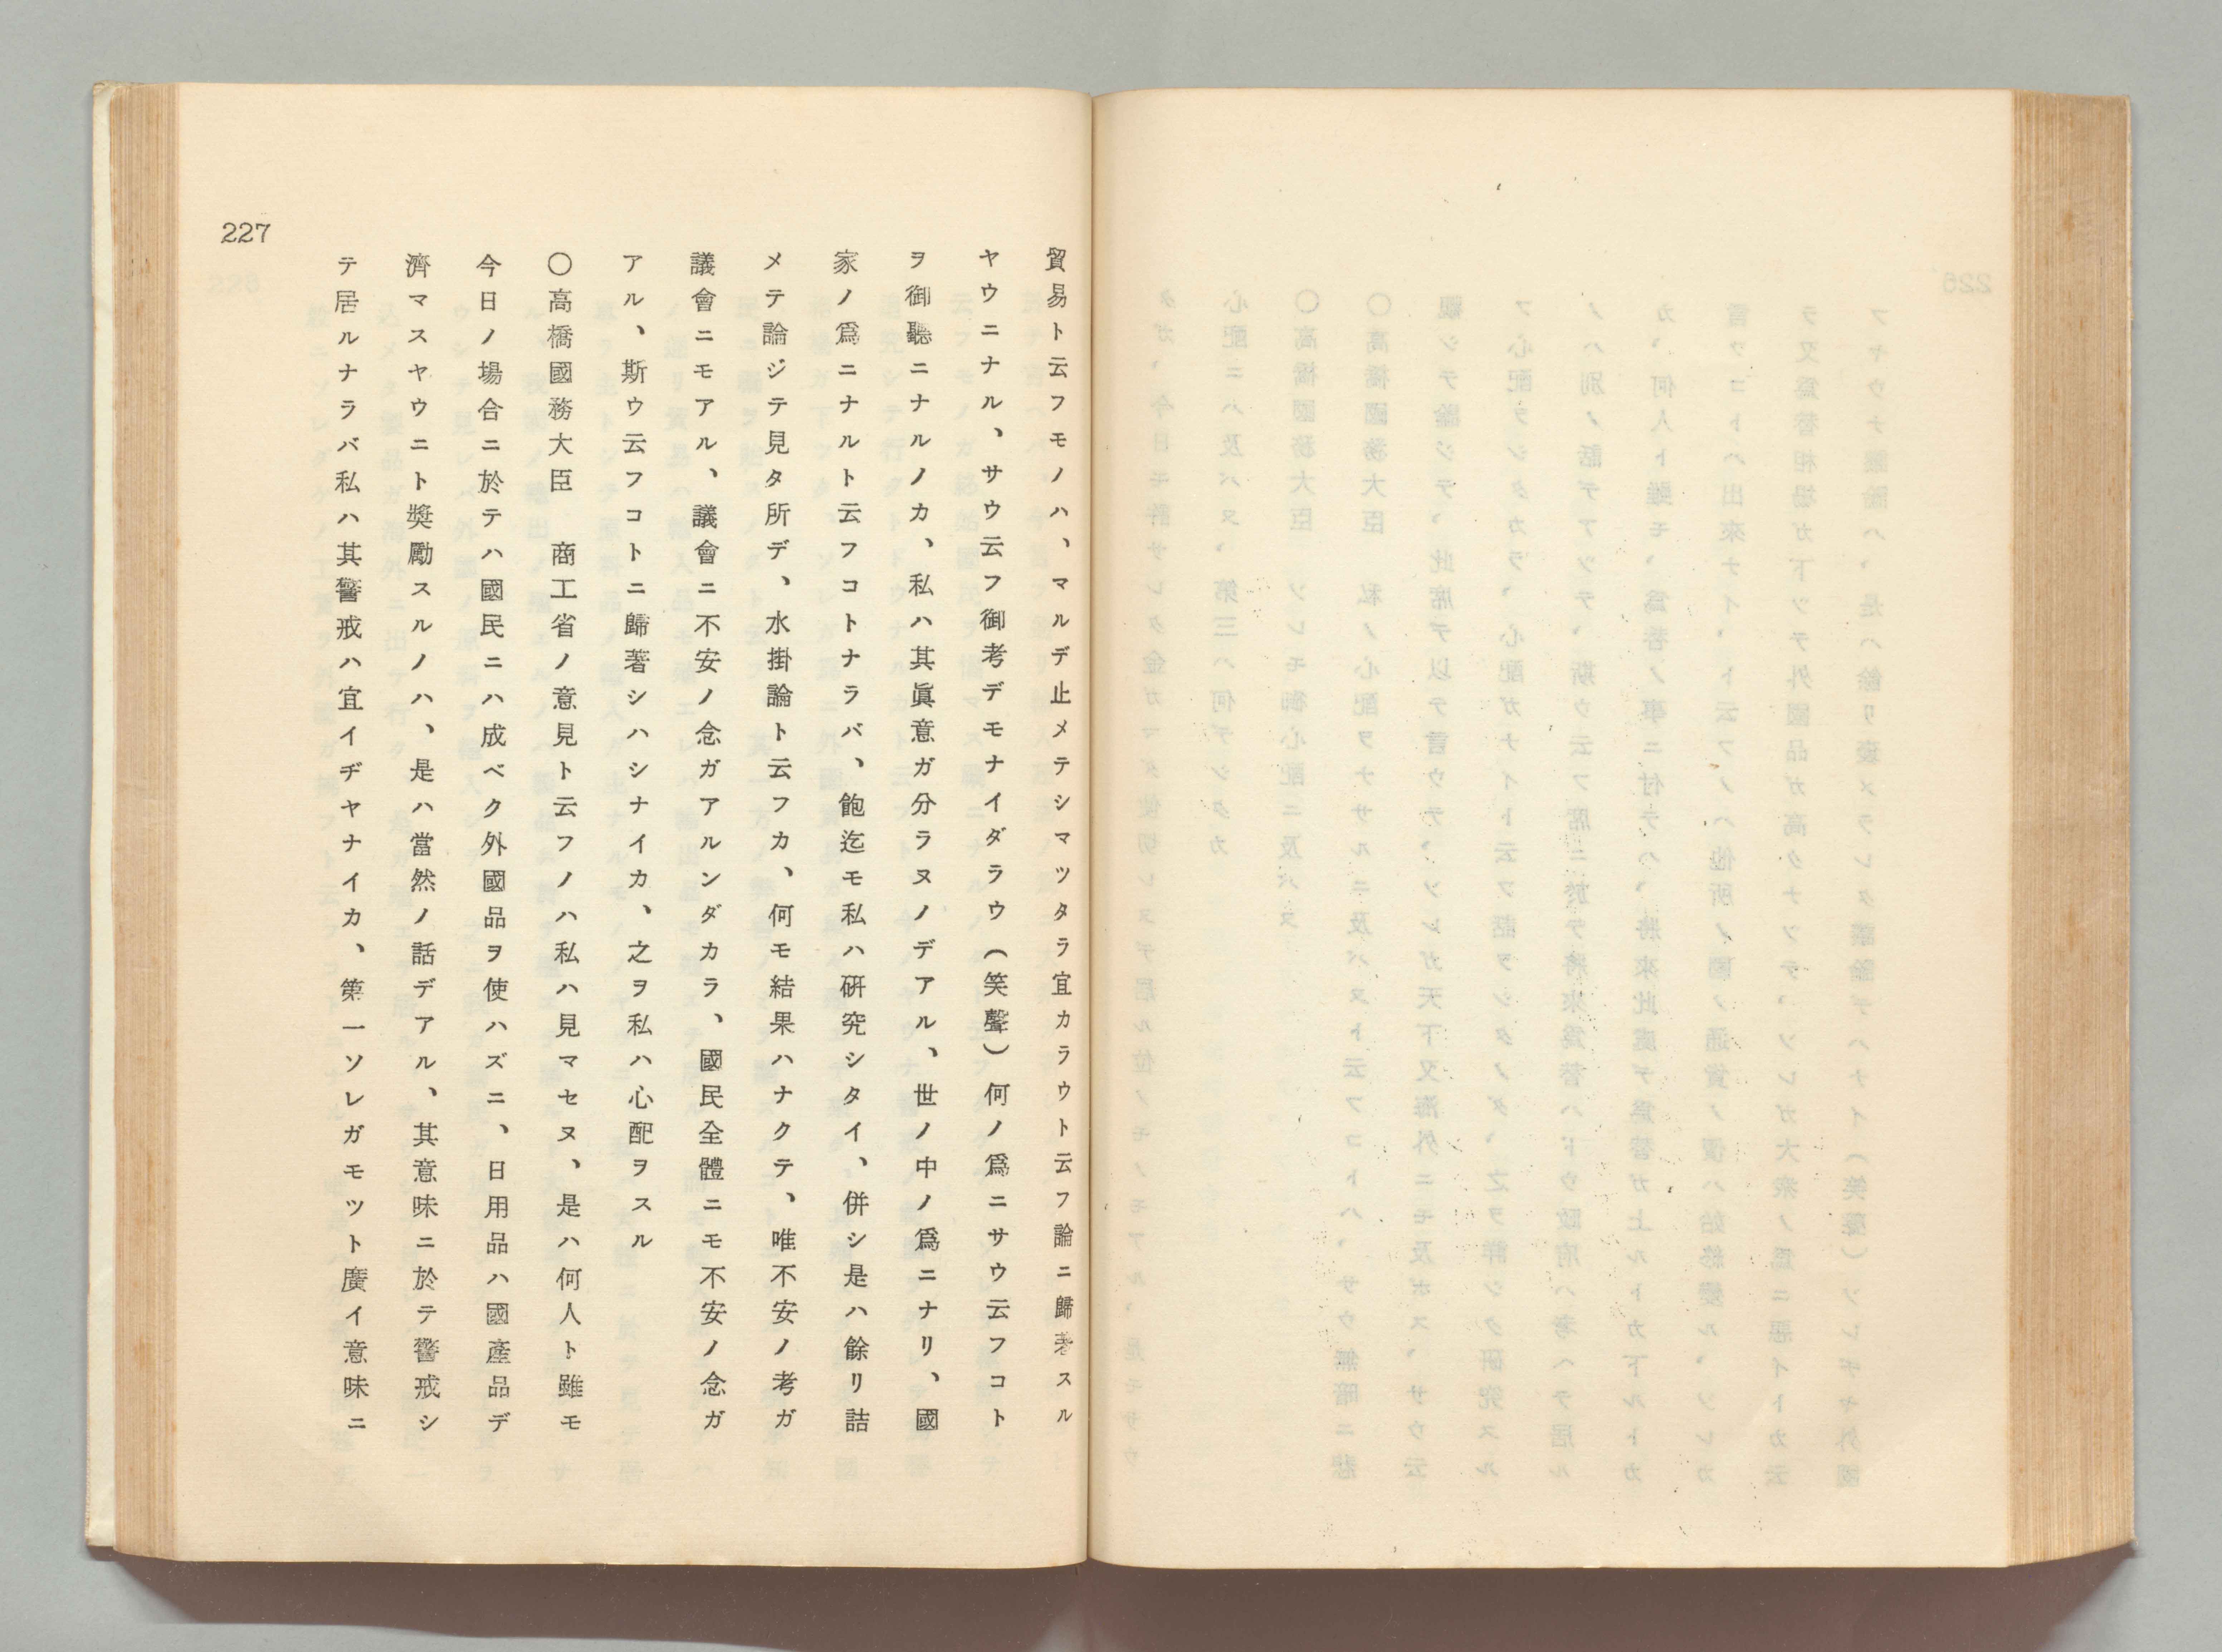 貿易ト云フモノハ、マルデ止メテシマツタラ宜カラウト云フ論ニ歸著スル
ヤウニナル、サウ云フ御考デモナイダラウ(笑聲)何ノ爲ニサウ云フコト
ヲ御聽ニナルノカ、私ハ其眞意ガ分ラヌノデアル、世ノ中ノ爲ニナリ、國
家ノ爲ニナルト云フコトナラバ、飽迄モ私ハ硏究シタイ、併シ是ハ餘リ詰
メテ論ジテ見タ所デ、水掛論ト云フカ、何モ結果ハナクテ、唯不安ノ考ガ
議會ニモアル、議會ニ不安ノ念ガアルンダカラ、國民全體ニモ不安ノ念ガ
アル、斯ウ云フコトニ歸著シハシナイカ、之ヲ私ハ心配ヲスル
〇高橋國務大臣　商工省ノ意見ト云フノハ私ハ見マセヌ、是ハ何人ト雖モ
今日ノ場合ニ於テハ國民ニハ成ベク外國品ヲ使ハズニ、日用品ハ國產品デ
濟マスヤウニト奬勵スルノハ、是ハ當然ノ話デアル、其意味ニ於テ警戒シ
テ居ルナラバ私ハ其警戒ハ宜イヂヤナイカ、第一ソレガモツト廣イ意味ニ
227